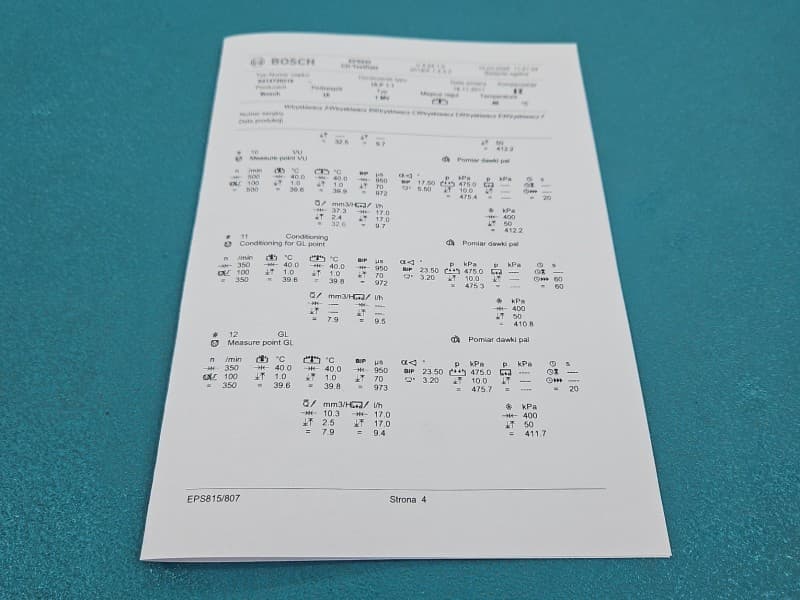 BOSCH
Bosch
Measure point VU Pomiar dawki pal
n /min °C °C BIP µs ° p kPa p kPa s
500 40.0 40.0 950 BIP 17.50 475.0 ---- ----
100 1.0 1.0 70 5.50 10.0 ---- ----
= 500 = 39.6 = 39.9 = 972 = 475.4 = ---- = 20
mm3/H l/h kPa
37.3 17.0 400
2.4 17.0 50
= 32.6 = 9.7 = 412.2
11 Conditioning
Conditioning for GL point Pomiar dawki pal
n /min °C °C BIP µs ° p kPa p kPa s
350 40.0 40.0 950 BIP 23.50 475.0 ---- ----
100 1.0 1.0 70 3.20 10.0 ---- 60
= 350 = 39.6 = 39.8 = 972 = 475.3 = ---- = 60
mm3/H l/h kPa
---- ---- 400
---- ---- 50
= 7.9 = 9.5 = 410.8
12 GL
Measure point GL Pomiar dawki pal
n /min °C °C BIP µs ° p kPa p kPa s
350 40.0 40.0 950 BIP 23.50 475.0 ---- ----
100 1.0 1.0 70 3.20 10.0 ---- ----
= 350 = 39.6 = 39.8 = 973 = 475.7 = ---- = 20
mm3/H l/h kPa
10.3 17.0 400
2.5 17.0 50
= 7.9 = 9.4 = 411.7
EPS815/807 Strona 4